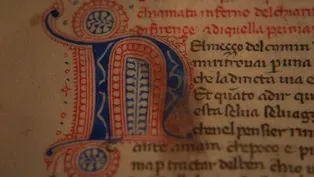 chiamata inferno del chiari
di firençe a di quella p
N
El meçço del camin
mi ritrovai p una
che la diricta via e
Et quāto a dir qu
esta selva selvagg
che nel pensier rin
ante amara che poco e p
ma p tractar del ben chio